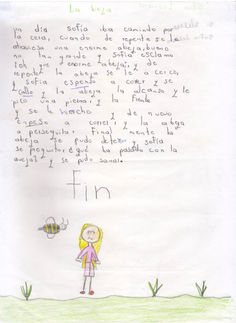 La beja
Un dia sofía iba caminando por
la cera, cuando de repente se le
una enorme abeja, bueno
no tan grande y sofía esclamo
que enorme abeja!, y de
repente la abeja se le a cerco,
sofía espeso a correr y se
callo y la abeja la alcanzo y le
pico una pierna, y la frente
y se le y de nuevo
enpeso a correr, y la abeja
a perseguirla. Final mente la
abeja se pudo detener y sofía
se pregunto ¿ qué ha pasado con la
aveja? y se pudo sanar.
Fin